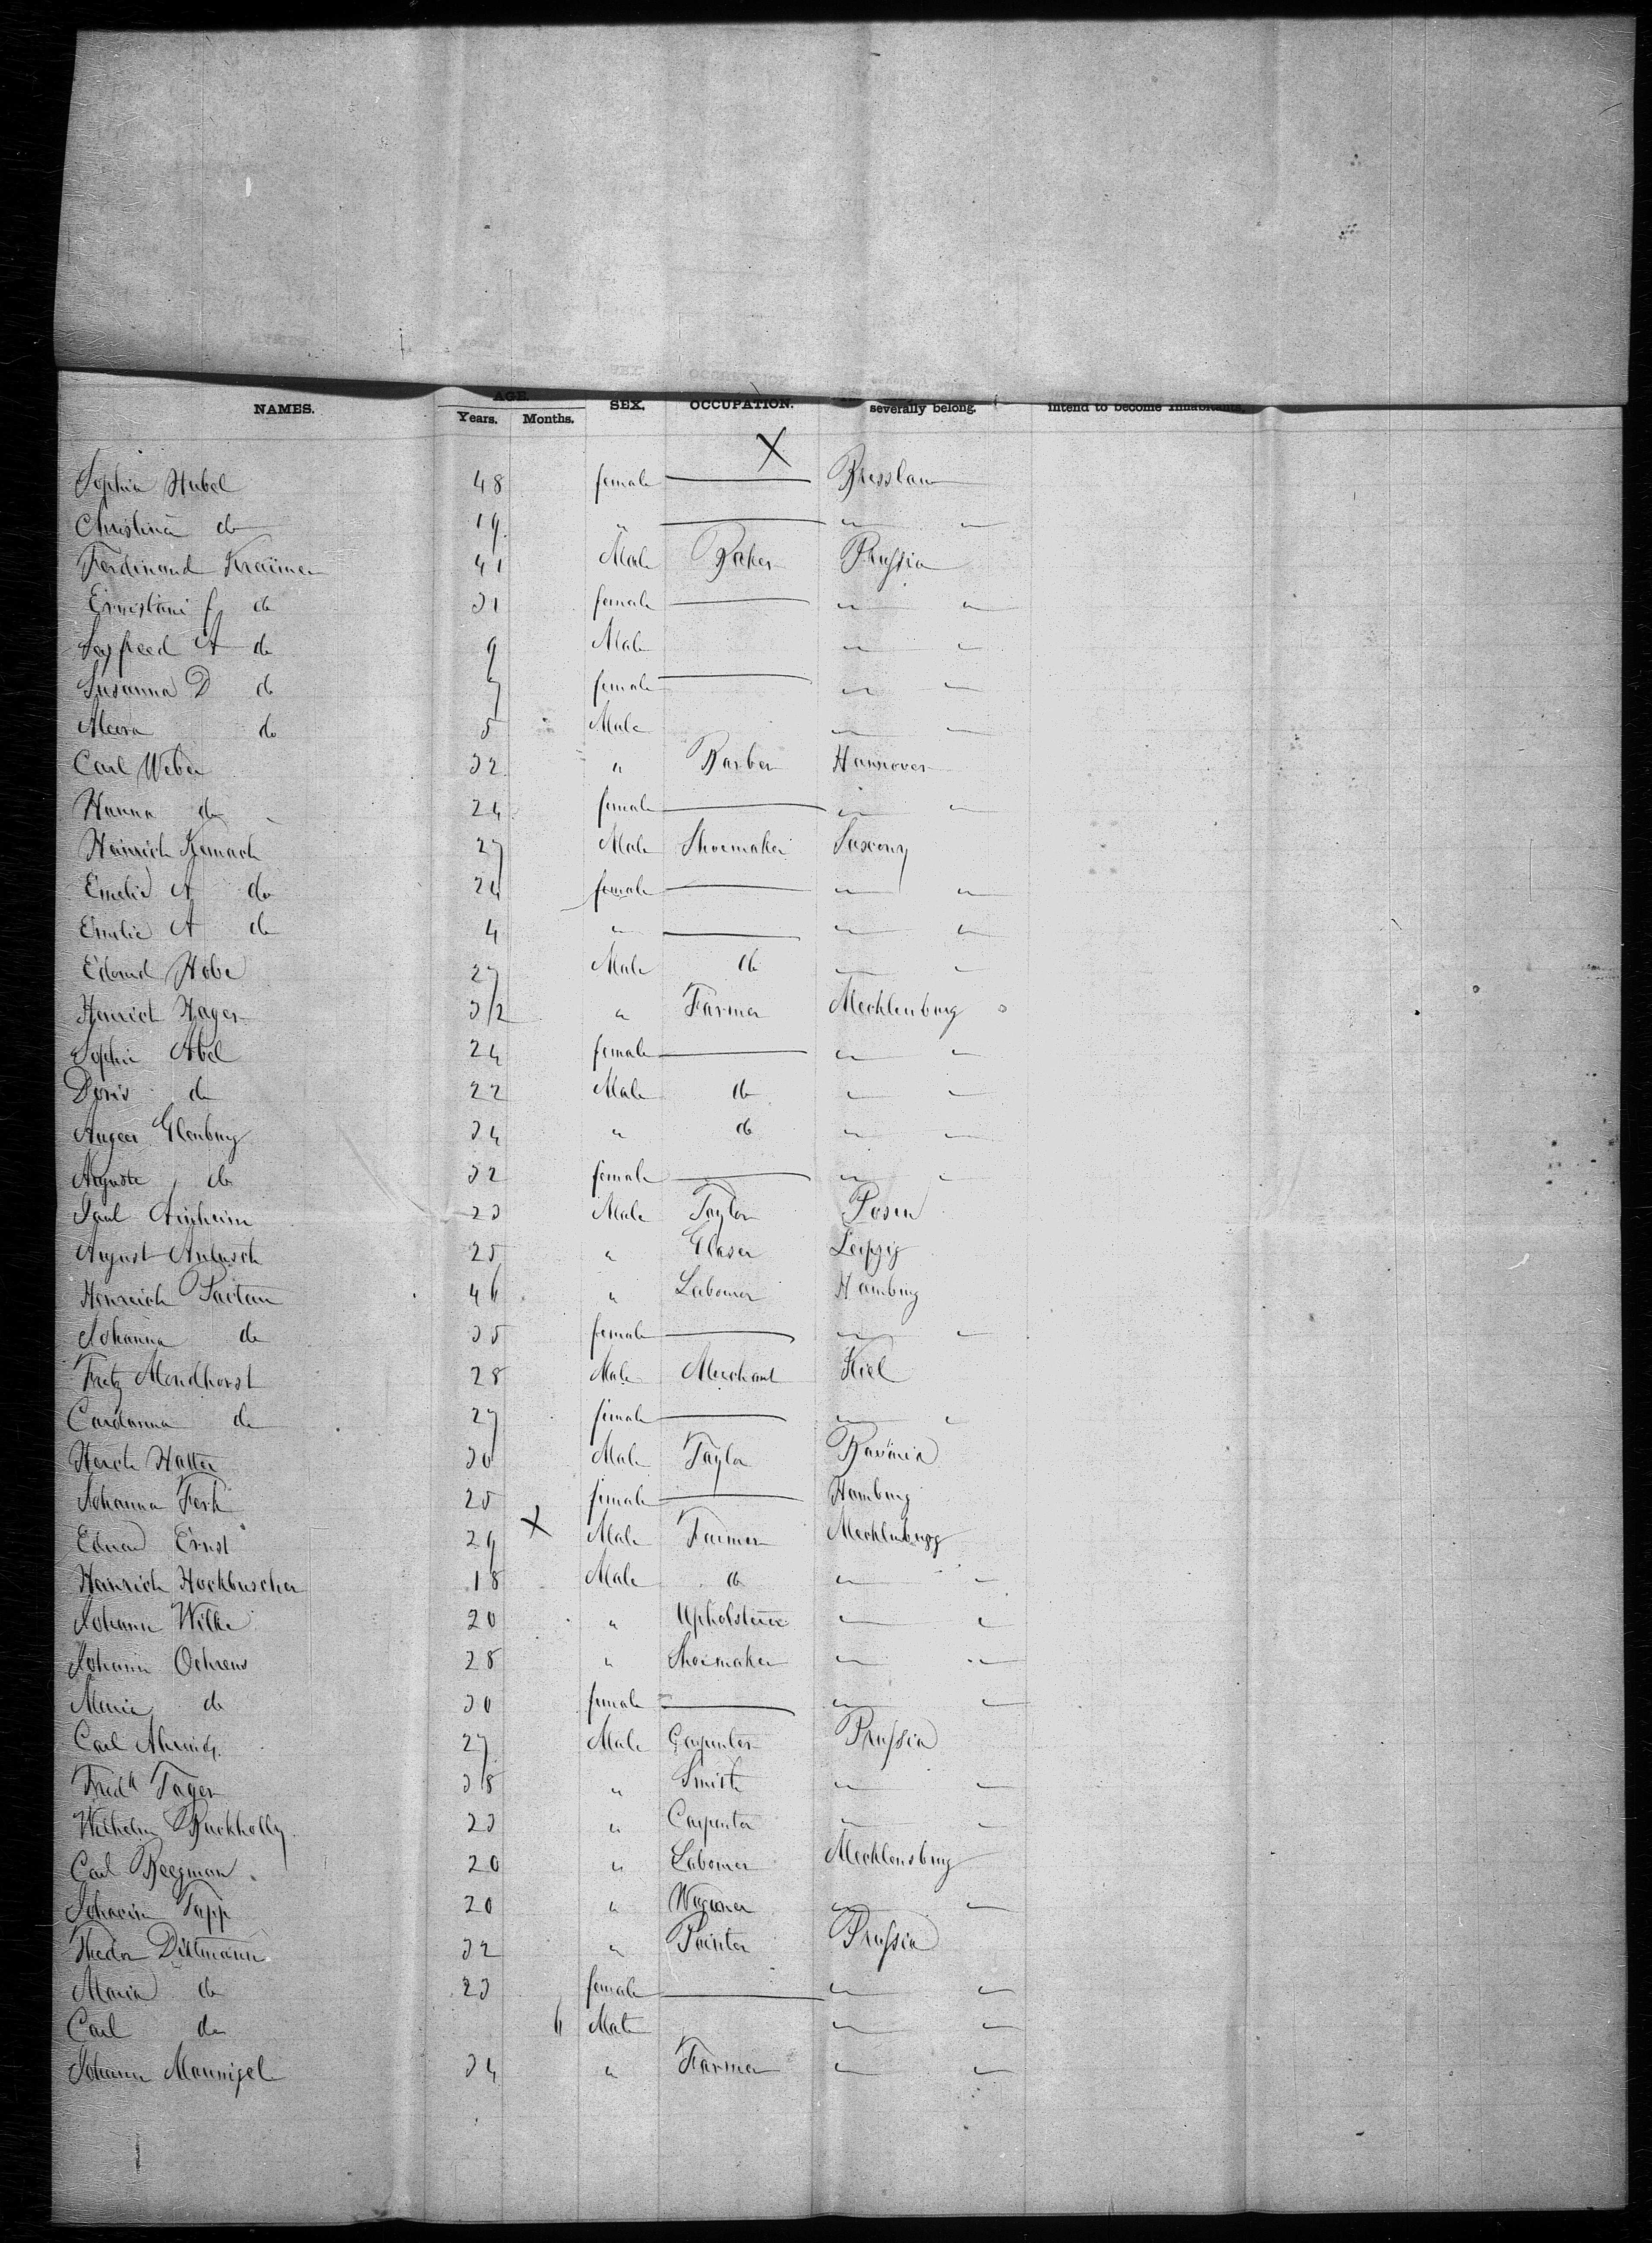 NAMES. AGE. SEX. OCCUPATION. severally belong. intend to become inhabitants.
Years. Months.
X
Sophia Hubel 48 female — Bresslau
Christina do 19 " — " "
Ferdinand Kraimer 41 Male Baker Prussia
Ernistine f do 31 female — " "
Seyfreed A do 9 Male " "
Susanna D do 7 female — " "
do 5 Male " "
Carl Weber 32 " Barber Hannover
Hanna do 24 female — " "
Heinrich 27 Male Shoemaker Saxony
Emelie A do 24 female — " "
Emelie A do 4 " — " "
Edward Habe 27 Male do " "
Heinrich Hager 32 " Farmer Mecklenburg
Sophie Abel 24 female — " "
Doris do 22 Male do " "
Elenburg 34 " do " "
Auguste do 32 female — " "
Paul Arnheim 23 Male Taylor Posen
August 25 " Glaser Leipzig
Heinrich 46 " Labourer Hamburg
Johanna do 35 female — " "
Fritz Mondhorst 28 Male Merchant Kiel
do 27 female — " "
Hatter 30 Male Taylor Bavaria
Johanna Ferk 25 female — Hamburg
Eduard Ernst 29 X Male Farmer Mecklenburg
Heinrich Hockbuscher 18 Male do " "
Johann Wilke 20 " Upholsterer " "
Johann Oehrens 28 " Shoemaker " "
Maria do 30 female — " "
Carl 27 Male Carpenter Prussia
Fredk Tager 38 " Smith " "
Wilhelm Buckholtz 23 " Carpenter " "
Carl Beegman 20 " Labourer Mecklensburg
Johann Tapp 20 " Wagoner " "
Theodor Dittmann 32 " Painter Prussia
Maria do 23 female — " "
Carl do 6 Male " "
Johann 34 " Farmer " "